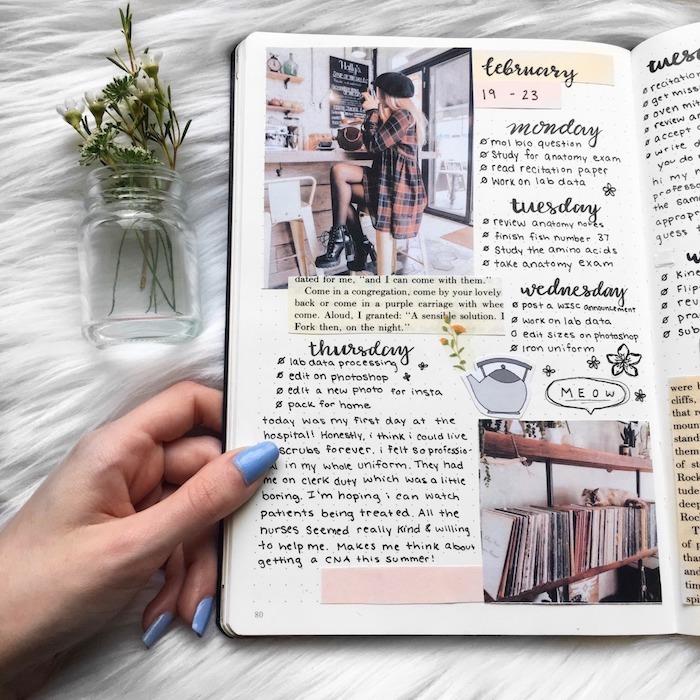 Holly's
february
19 - 23
monday
mol bio question
Study for anatomy exam
read recitation paper
work on lab data
tuesday
review anatomy notes
finish fish number 37
Study the amino acids
take anatomy exam
wednesday
post a WISC announcement
work on lab data
edit sizes on photoshop
iron uniform
MEOW
dated for me, "and I can come with them."
Come in a congregation, come by your lovely
back or come in a purple carriage with whee
come. Aloud, I granted: "A sensible solution. I
Fork then, on the night."
thursday
lab data processing
edit on photoshop
edit a new photo for insta
pack for home
today was my first day at the
hospital! Honestly, i think i could live
scrubs forever. i felt so professio-
in my whole uniform. They had
me on clerk duty which was a little
boring. I'm hoping i can watch
patients being treated. All the
nurses seemed really kind & willing
to help me. Makes me think about
getting a CNA this summer!
80
recitation
get miss
oven m
review
accept
write
you do
hi my
profes
the sam
approp
guess t
Kine
Flip
rev
pra
sub
were b
cliffs,
that r
mount
stand
them
of st
Rock
tude
deep
Rock
T
of p
that
and
tim
spi